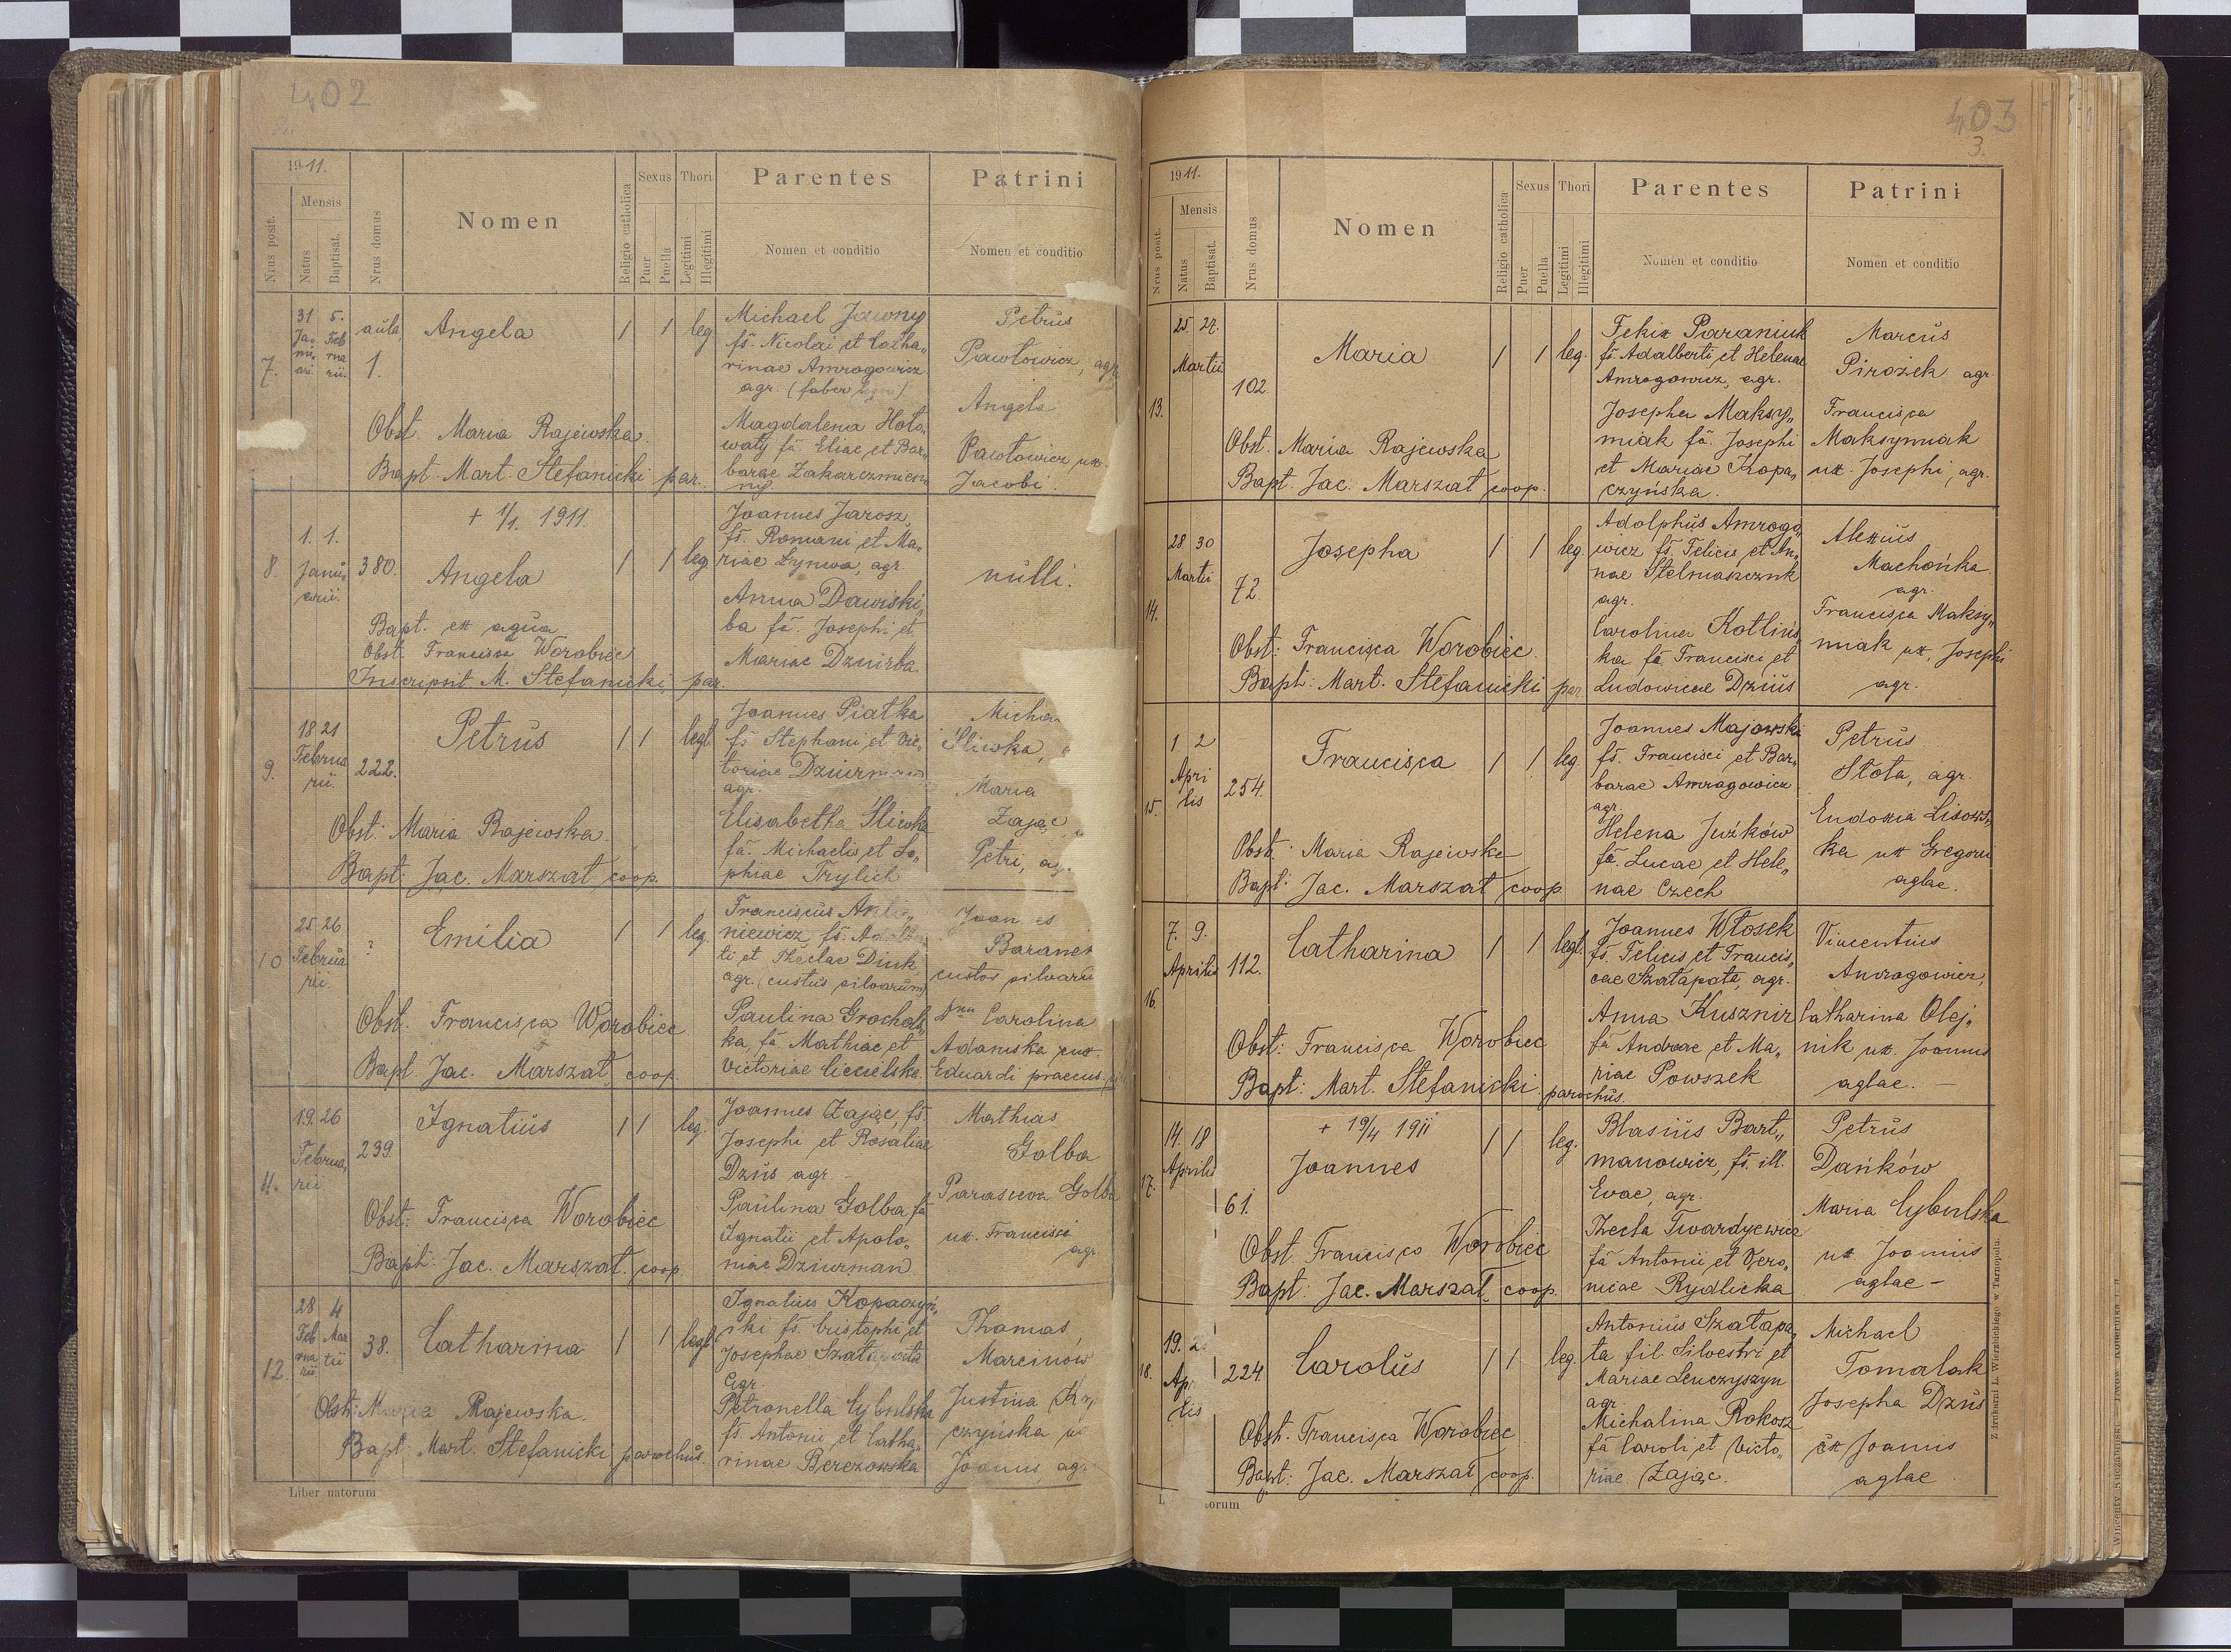 402
1911.
Nrus posit.
Mensis
Natus
Baptisat.
Nrus domus
Nomen
Religio catholica
Sexus
Puer
Puella
Thori
Legitimi
Illegitimi
Parentes
Nomen et conditio
Patrini
Nomen et conditio
7.
31 5.
Ja- Feb
nu- rua
arii. rii.
aula
1.
Angela
1 1 leg
Obst. Maria Rajewska.
Bapt. Mart. Stefanicki par.
Michael Jawny
fs. Nicolai et Catha„
rinae Amrogowicz
agr. (faber
Magdalena Hoło„
waty fa. Eliae et Bar„
barae Zakarczmien„
ny
Petrus
Pawłowicz, agr
Angela
Pawłowicz ux.
Jacobi.
8.
1. 1.
Janu„
arii.
380.
+ 1/1. 1911.
Angela
1 1 leg.
Bapt. ex aqua
Obst. Francisca Worobiec
Inscripsit M. Stefanicki, par.
Joannes Jarosz,
fs. Romani et Ma„
riae Łynwa, agr.
Anna Dawiski„
ba fa. Josephi et
Mariae
nulli.
9.
18 21
Februa
rii.
222.
Petrus
1 1 legl
Obst: Maria Rajewska.
Bapt: Jac. Marszał coop.
Joannes Piatka
fs Stephani et Vic„
toriae Dziurman
agr.
Elisabetha Śliwka
fa. Michaelis et So„
phiae Trylich
Micha
Sliwka,
Maria
Zając
Petri, ag.
10
25 26
Februa
rii.
?
Emilia
1 1 leg.
Obst. Francisca Worobiec
Bapt. Jac. Marszał, coop.
Franciscus
niewicz, fs.
ti et Theclae Diuk
agr. (custus silvarum)
Paulina Grochals„
ka, fa Mathiae et
Victoriae Ciecielska.
Joan es
Baranek
custos silvaru
Carolina
Adamska, ux.
Eduardi
11.
19. 26
Februa„
rii
239
Ignatius
1 1 leg.
Obst: Francisca Worobiec
Bapt: Jac. Marszał. coop.
Joannes Zając, fs.
Josephi et Rosaliae
Dzius agr. -
Paulina Golba fa
Ignatii et Apolo„
niae Dziurman
Mathias
Golba
Parasceva Golba
ux. Francisci
agr.
12.
28 4
Feb Mar
rua tii
rii
38.
Catharina
1 1 legl
Obst: Maria Rajewska.
Bapt: Mart. Stefanicki parochus.
Ignatius Kopaczyń„
ski fs. Cristophi, et
Josephae Szatapata
agr.
Petronella Cybulska
fs. Antonii et Catha„
rinae Berezowska
Thomas,
Marcinów
Justina
czyńska
Joannis, agr
Liber natorum
403
3.
1911.
Nrus posit.
Mensis
Natus
Baptisat.
Nrus domus
Nomen
Religio catholica
Sexus
Puer
Puella
Thori
Legitimi
Illegitimi
Parentes
Nomen et conditio
Patrini
Nomen et conditio
13.
25. 27.
Martii
102.
Maria
1 1 leg.
Obst. Maria Rajewska
Bapt. Jac. Marszał coop.
Felix Paraniuk
fs. Adalberti et Helenae
Amrogowicz, agr.
Josepha Maksy„
miak fa. Josephi
et Mariae Kopa„
czyńska.
Marcus
Pirożek agr.
Francisca
Maksymiak
ux. Josephi, agr.
14.
28 30
Martii
72.
Josepha
1 1 leg.
Obst: Francisca Worobiec.
Bapt: Mart. Stefanicki par.
Adolphus Amrogo„
wicz fs. Felicis et An„
nae Stelmaszczuk
agr.
Carolina Kotlińs„
ka fa Francisci et
Ludowicae Dzius
Alexius
Machońka
agr.
Francisca Maksy„
miak ux. Josephi
agr.
15.
1. 2
Apri
lis
254.
Francisca
1 1 leg
Obst: Maria Rajewska
Bapt: Jac. Marszał coop.
Joannes Majowski
fs. Francisci et Bar„
barae Amragowicz
agr.
Helena Juźków
fa. Lucae et Hele„
nae Czech
Petrus
Słota, agr.
Eudoxia Lisows„
ka ux Gregorii
aglae.
16.
7. 9.
Aprilis
112.
Catharina
1 1 legl.
Obst: Francisca Worobiec
Bapt: Mart. Stefanicki parochus.
Joannes Włosek
fs. Felicis et Francis„
cae Szatapata, agr.
Anna Kusznir
fa Andreae et Ma„
riae Powszek
Vincentius
Amragowicz,
Catharina Olej„
nik ux. Joannis
aglae. —
17.
14. 18
Aprilis
61.
+ 19/4 1911
Joannes
1 1 leg.
Obst. Francisca Worobiec
Bapt: Jac. Marszał, coop.
Blasius Bart„
manowicz, fs. ill.
Evae, agr.
Thecla Twardyewicz
fa Antonii et Vero„
nicae Rydlicka
Petrus
Dańków
Maria Cybulska
ux Joannis
aglae -
18.
19. 2
Ap
lis
224.
Carolus
1 1 leg.
Obst. Francisca Worobiec
Bapt: Jac. Marszał coop.
Antonius Szatapa„
ta fil. Silvestri et
Mariae Lenczyszyn
agr.
Michalina Rokosz
fa Caroli et Victo„
riae Zając.
Michael
Tomalak
Josepha Dzius
ux Joannis
aglae
L torum
Z drukarni L. Wierzbickiego w Tarnopolu.